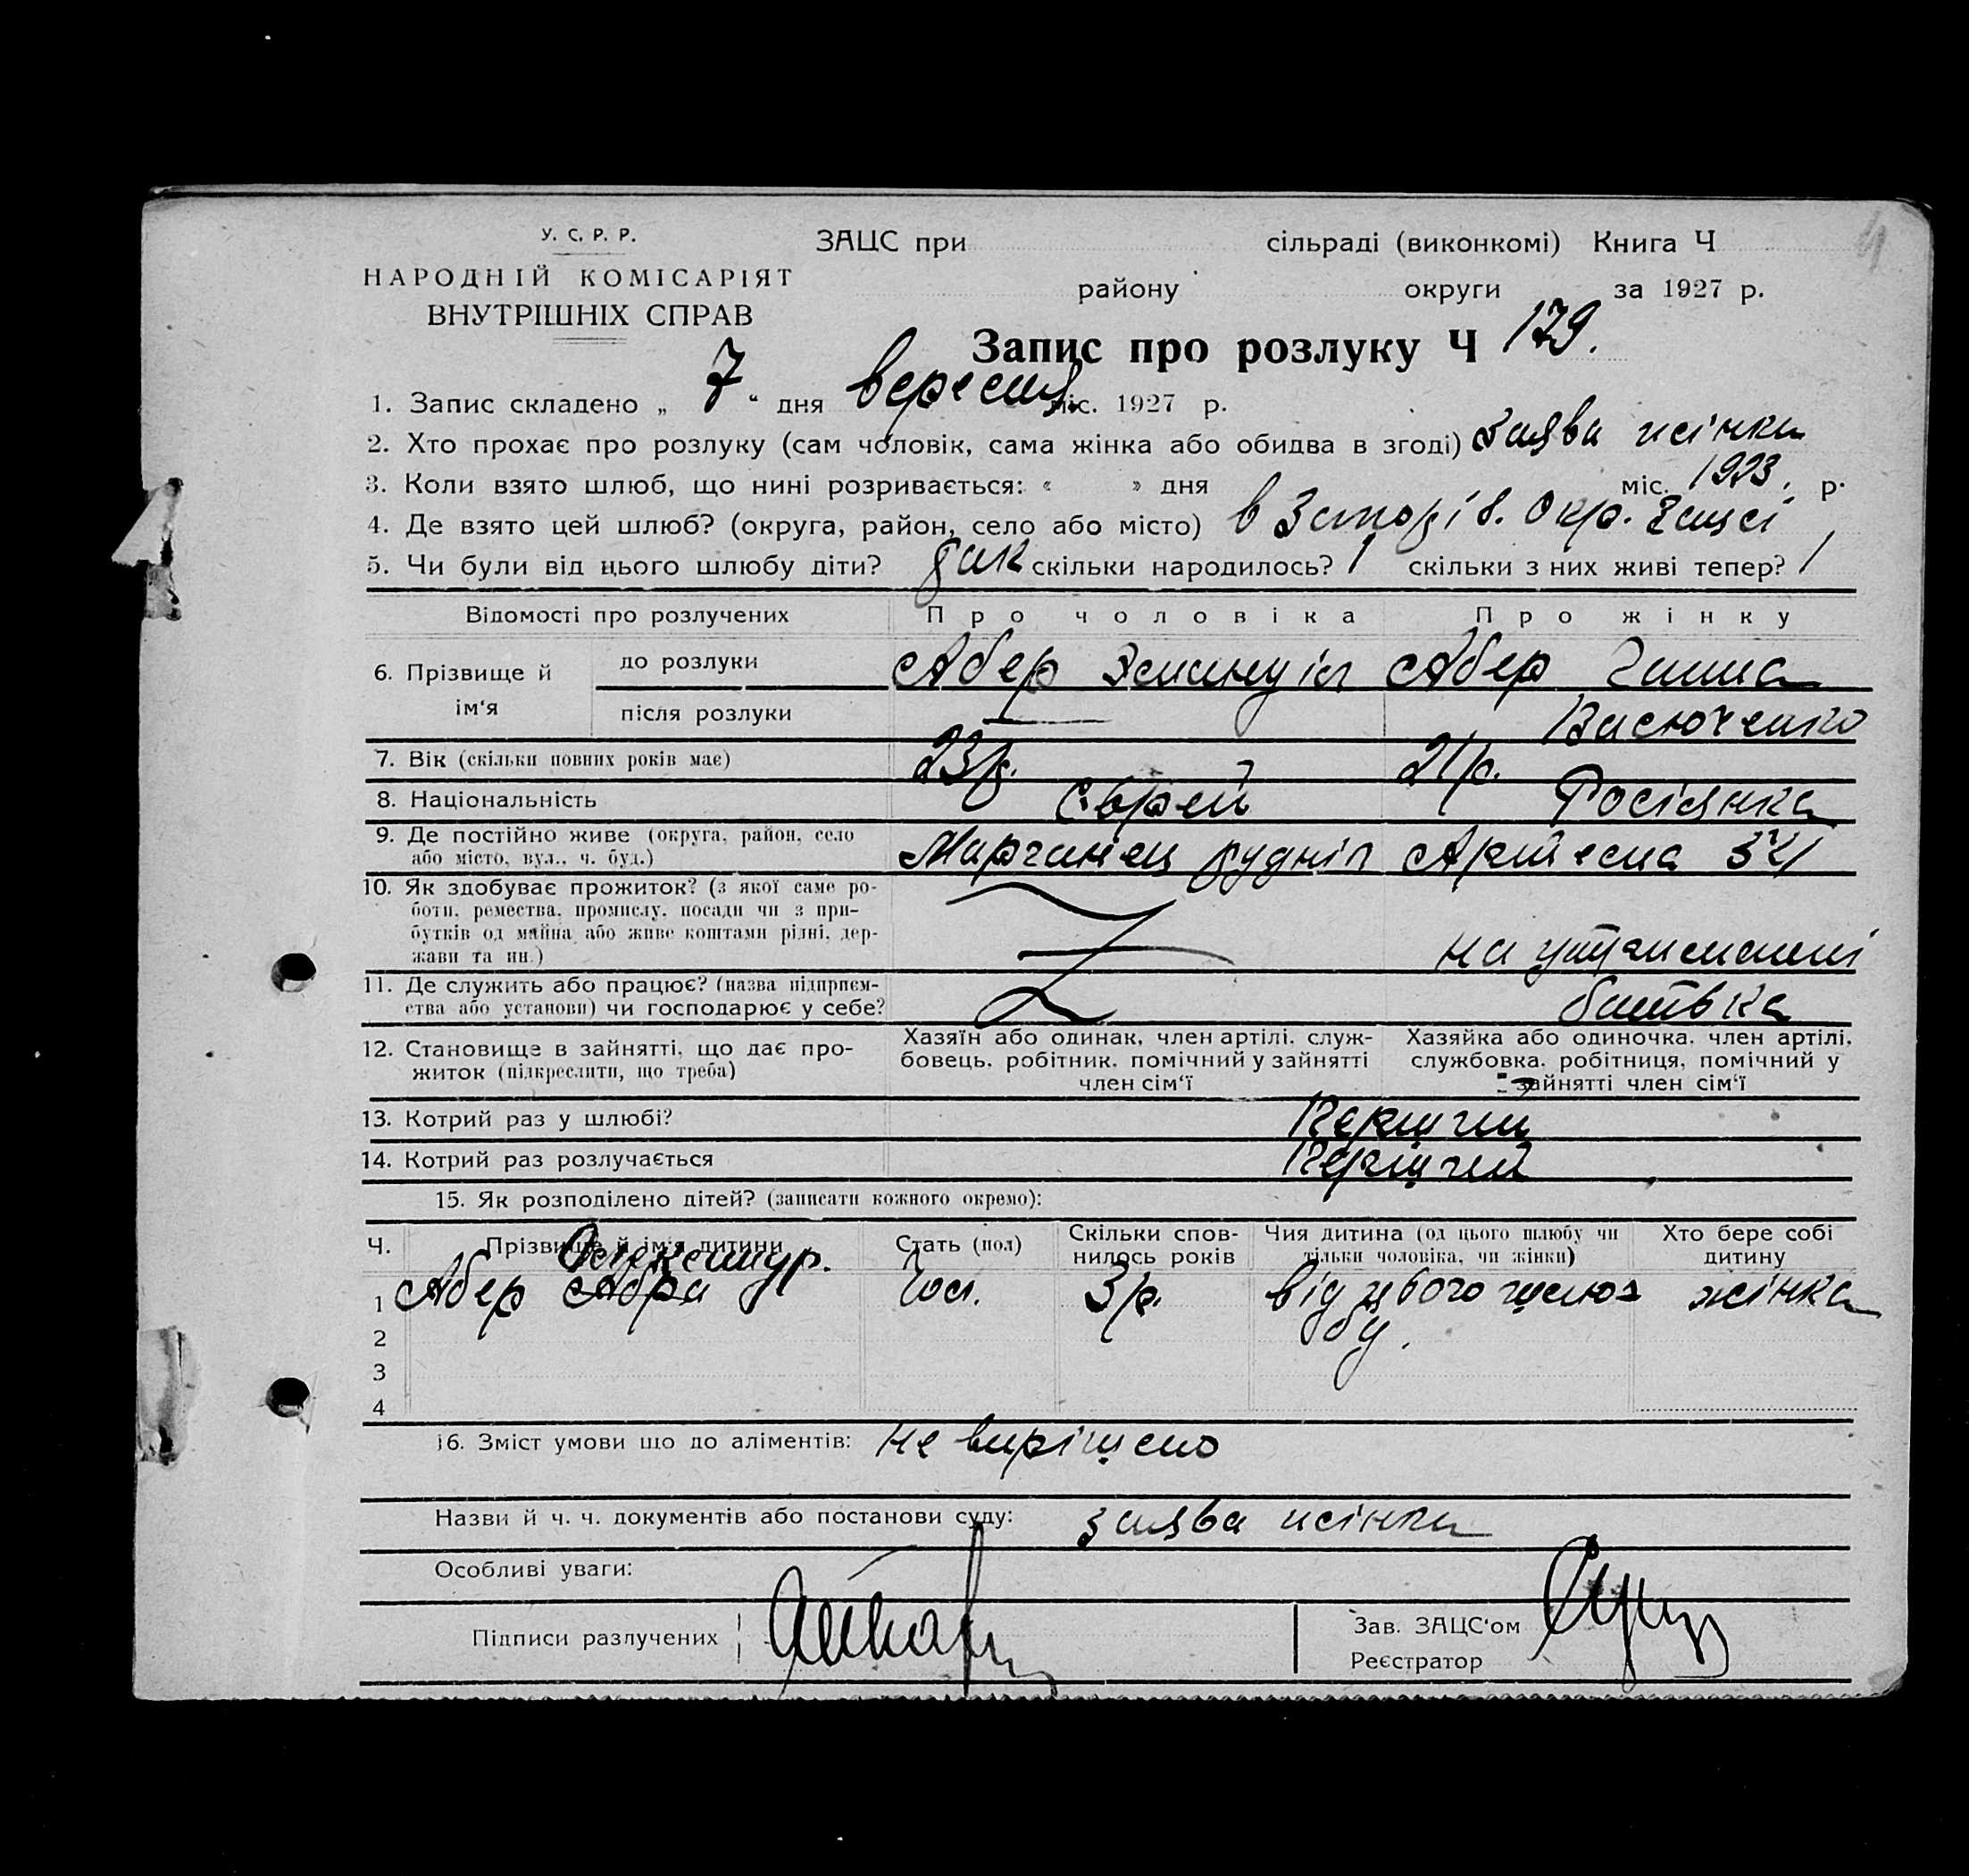 4
У. С. Р. Р.
НАРОДНІЙ КОМІСАРІЯТ
ВНУТРІШНІХ СПРАВ
ЗАЦС при сільраді (виконкомі) Книга Ч
району округи за 1927 р.
Запис про розлуку Ч 179.
1. Запис складено „ 7 “ дня вересня міс. 1927 р.
2. Хто прохає про розлуку (сам чоловік, сама жінка або обидва в згоді) заява жінки
3. Коли взято шлюб, що нині розривається: « » дня міс. 1923. р.
4. Де взято цей шлюб? (округа, район, село або місто) в Запоріз. Окр. Зацсі
5. Чи були від цього шлюбу діти? так скільки народилось? 1 скільки з них живі тепер? 1
Відомості про розлучених Про чоловіка Про жінку
6. Прізвище й ім‘я
до розлуки Абер Абер
після розлуки — Васюченко
7. Вік (скільки повних років має) 23 р. 21 р.
8. Національність Єврей Росіянка
9. Де постійно живе (округа, район, село або місто, вул., ч. буд.) Марганец рудник Артема
10. Як здобуває прожиток? (з якої саме ро-
боти, ремества, промислу, посади чи з при-
бутків од майна або живе коштами рідні, дер-
жави та ин.) на утриманні
11. Де служить або працює? (назва підприєм-
ства або установи) чи господарює у себе? батька
12. Становище в зайнятті, що дає про-
житок (підкреслити, що треба)
Хазяїн або одинак, член артілі, служ-
бовець, робітник, помічний у зайнятті
член сім‘ї
Хазяйка або одиночка, член артілі,
службовка, робітниця, помічний у
зайнятті член сім‘ї
13. Котрий раз у шлюбі? Перший
14. Котрий раз розлучається Перший
15. Як розподілено дітей? (записати кожного окремо):
Ч. Прізвище й ім‘я дитини Стать (пол) Скільки спов-
нилось років Чия дитина (од цього шлюбу чи
тільки чоловіка, чи жінки) Хто бере собі
дитину
1 Абер Абра Чол. 3 р. від цього шлю- жінка
2 бу.
3
4
16. Зміст умови що до аліментів: не вирішено
Назви й ч. ч. документів або постанови суду: заява жінки
Особливі уваги:
Підписи разлучених
Зав. ЗАЦС‘ом
Реєстратор